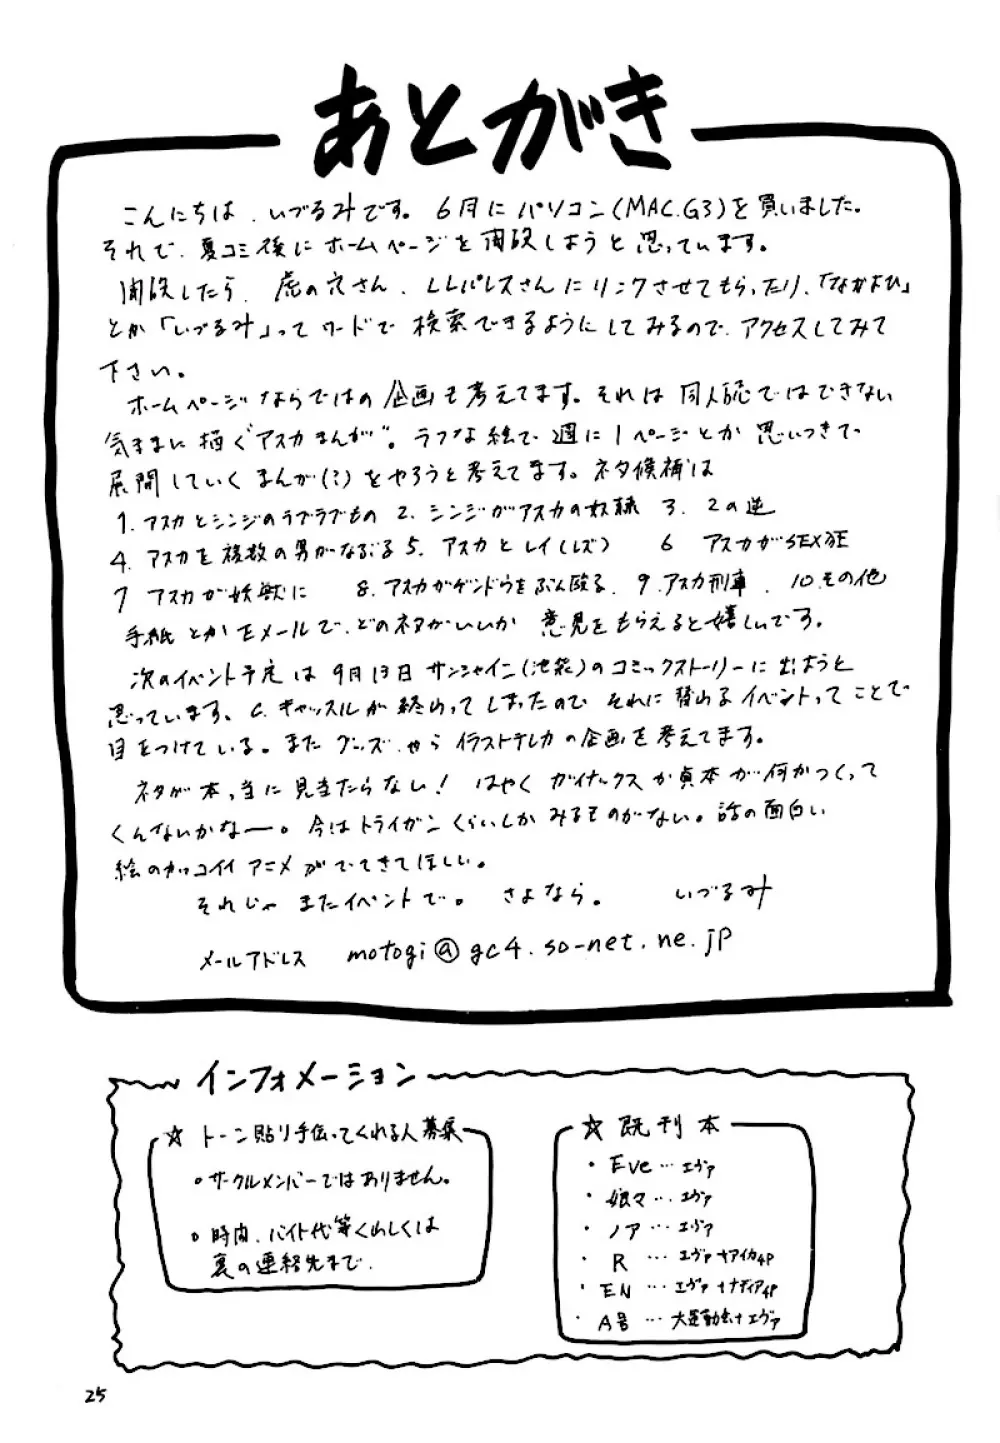 あとがき
こんにちは、いづるみです。6月にパソコン(MAC.G3)を買いました。
それで、夏コミ後にホームページを開設しようと思っています。
開設したら、虎の穴さん、LLパレスさんにリンクさせてもらったり、「なかよひ」
とか「いづるみ」ってワードで検索できるようにしてみるので、アクセスしてみて
下さい。
ホームページならではの企画も考えてます。それは同人誌ではできない
気ままに描く"アスカまんが"。ラフな絵で週に1ページとか思いつきで
展開していくまんが(?)をやろうと考えてます。ネタ候補は
手紙とかEメールで、どのネタがいいか意見をもらえると嬉しいです。
次のイベント予定は9月13日サンシャイン(池袋)のコミックストーリーに出ようと
思っています。C.キャッスルが終わってしまったので、それに替わるイベントってことで
目をつけている。またグッズやらイラストテレカの企画を考えてます。
ネタが本当に見当たらない! はやくガイナックスか貞本が何かつくって
くんないかなー。今はトライガンくらいしかみるものがない。話の面白い
絵のカッコイイアニメがでてきてほしい。
それじゃまたイベントで。さよなら。 いづるみ
メールアドレス motogi@gc4.so-net.ne.jp
インフォメーション
☆ トーン貼り手伝ってくれる人募集
・サークルメンバーではありません。
・時間、バイト代等くわしくは
裏の連絡先まで.
☆ 既刊本
・Eve…エヴァ
・娘々…エヴァ
・ノア…エヴァ
・R …エヴァ+アイカ4P
・EN …エヴァ+ナディア4P
・A号 …大運動会+エヴァ
25